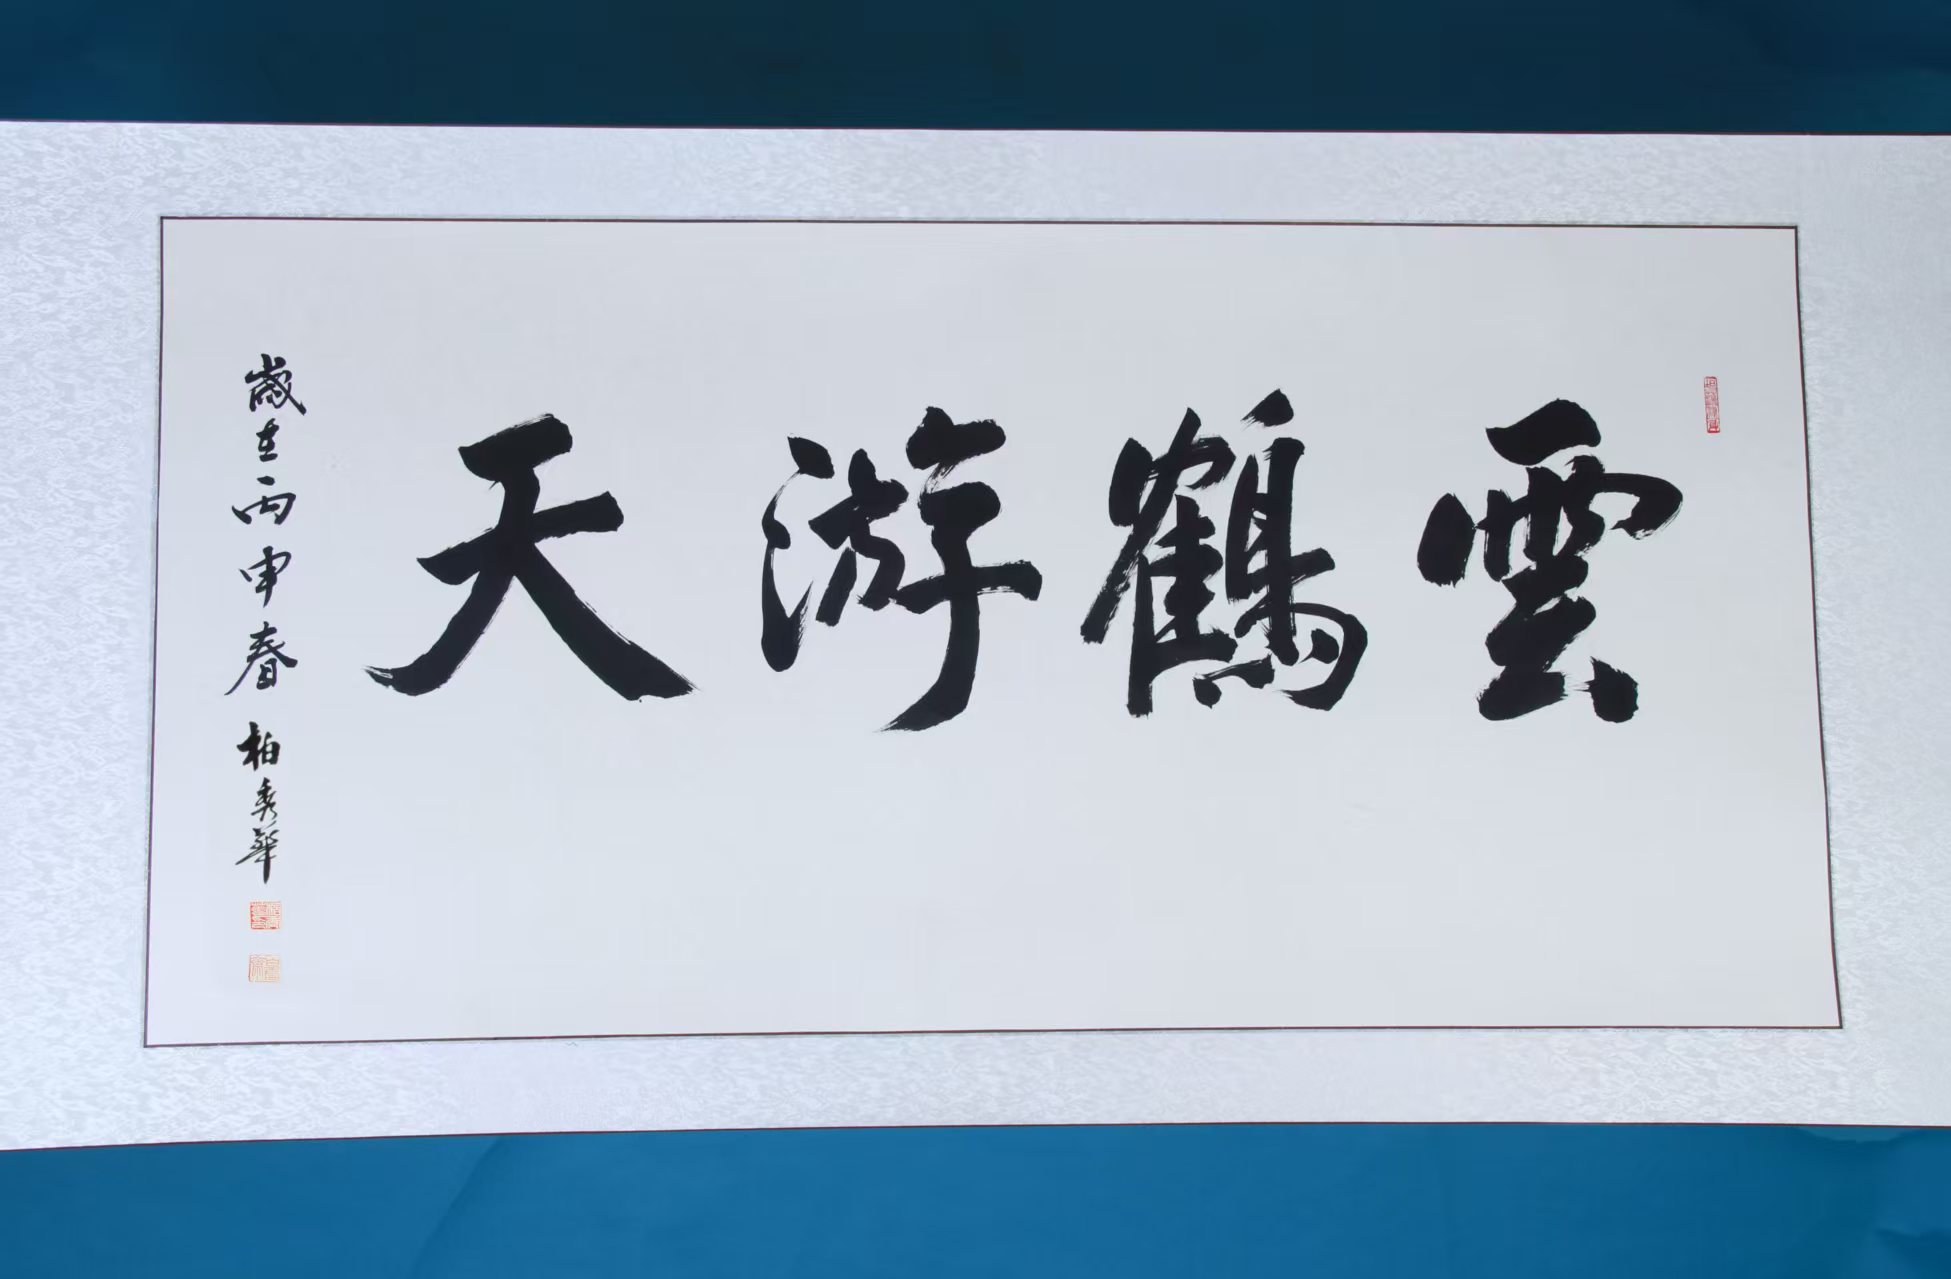 雲鶴游天
歲在丙申春 柏秀華